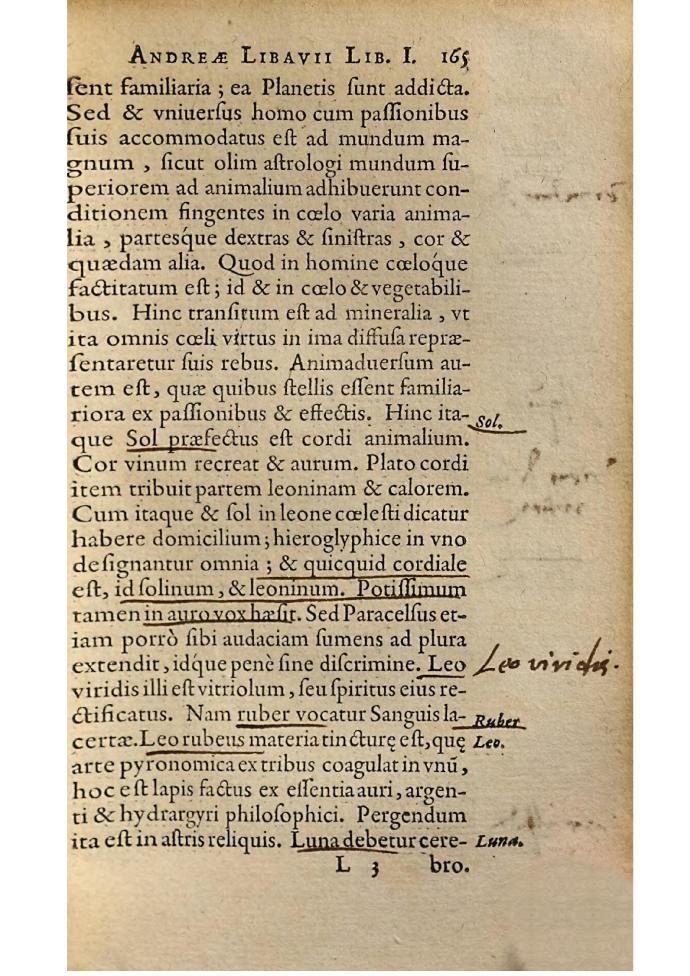 ANDREÆ LIBAVII LIB. I. 165
ſent familiaria ; ea Planetis ſunt addicta.
Sed & vniuerſus homo cum paſſionibus
ſuis accommodatus eſt ad mundum ma-
gnum , ſicut olim aſtrologi mundum ſu-
periorem ad animalium adhibuerunt con-
ditionem fingentes in cœlo varia anima-
lia , partesq́ue dextras & ſiniſtras , cor &
quædam alia. Quod in homine cœloq́ue
factitatum eſt ; id & in cœlo & vegetabili-
bus. Hinc tranſitum eſt ad mineralia , vt
ita omnis cœli virtus in ima diffuſa repræ-
ſentaretur ſuis rebus. Animaduerſum au-
tem eſt , quæ quibus ſtellis eſſent familia-
riora ex paſſionibus & effectis. Hinc ita-
Sol.
que Sol præfectus eſt cordi animalium.
Cor vinum recreat & aurum. Plato cordi
item tribuit partem leoninam & calorem.
Cum itaque & ſol in leone cœleſti dicatur
habere domicilium ; hieroglyphice in vno
deſignantur omnia ; & quicquid cordiale
eſt, id ſolinum , & leoninum. Potiſſimum
tamen in auro vox hæſit. Sed Paracelſus et-
iam porrò ſibi audaciam ſumens ad plura
extendit, idq́ue penè ſine diſcrimine. Leo
Leo viridis.
viridis illi eſt vitriolum , ſeu ſpiritus eius re-
ctificatus. Nam ruber vocatur Sanguis la-
Ruber
certæ. Leo rubeus materia tincturę eſt, quę
Leo.
arte pyronomica ex tribus coagulat in vnū ,
hoc eſt lapis factus ex eſſentia auri , argen-
ti & hydrargyri philoſophici. Pergendum
ita eſt in aſtris reliquis. Luna debetur cere-
Luna.
L 3 bro.